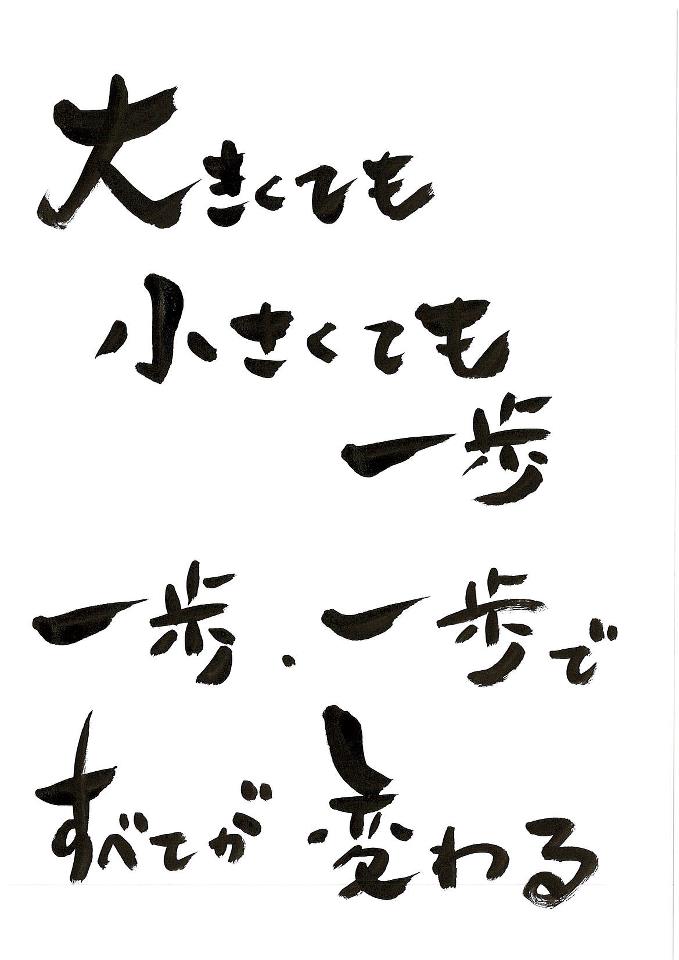 大きくても
小さくても
一歩
一歩、一歩で
すべてが変わる